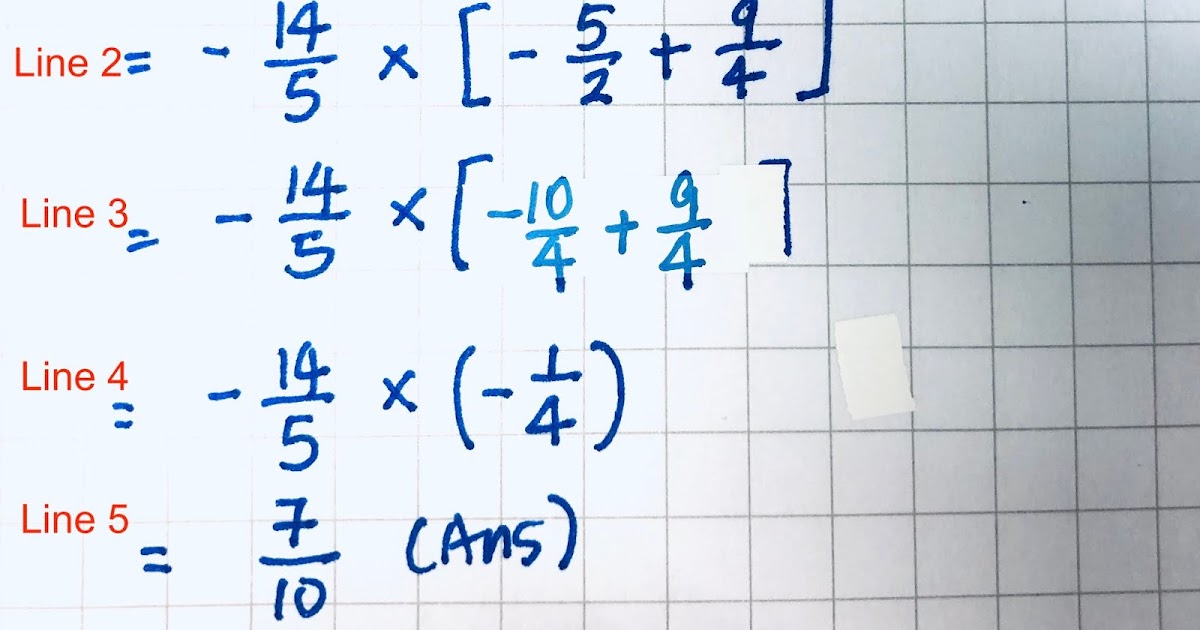 Line 2 = - 14/5 × [ - 5/2 + 9/4 ]
Line 3 = - 14/5 × [ - 10/4 + 9/4 ]
Line 4 = - 14/5 × ( - 1/4 )
Line 5 = 7/10 (Ans)